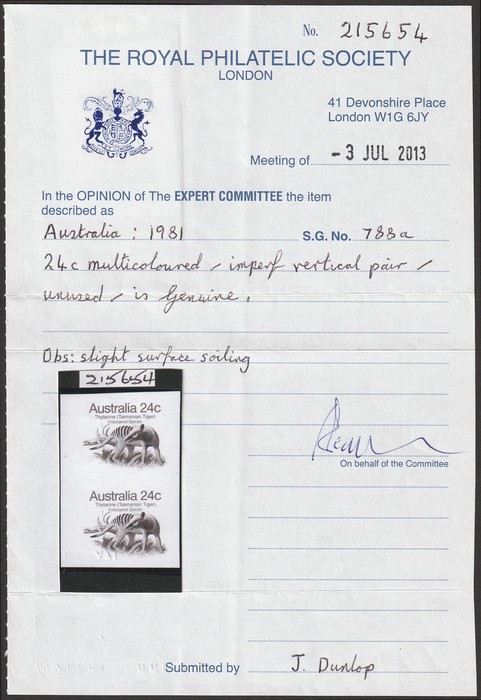 No. 215654
THE ROYAL PHILATELIC SOCIETY
LONDON
41 Devonshire Place
London W1G 6JY
Meeting of -3 JUL 2013
In the OPINION of The EXPERT COMMITTEE the item
described as
Australia : 1981 S.G. No. 788a
24c multicoloured / imperf vertical pair /
unused / is Genuine.
Obs: slight surface soiling
215654
Australia 24c
Thylacine (Tasmanian Tiger)
Endangered Species
Australia 24c
Thylacine (Tasmanian Tiger)
Endangered Species
On behalf of the Committee
Submitted by J. Dunlop